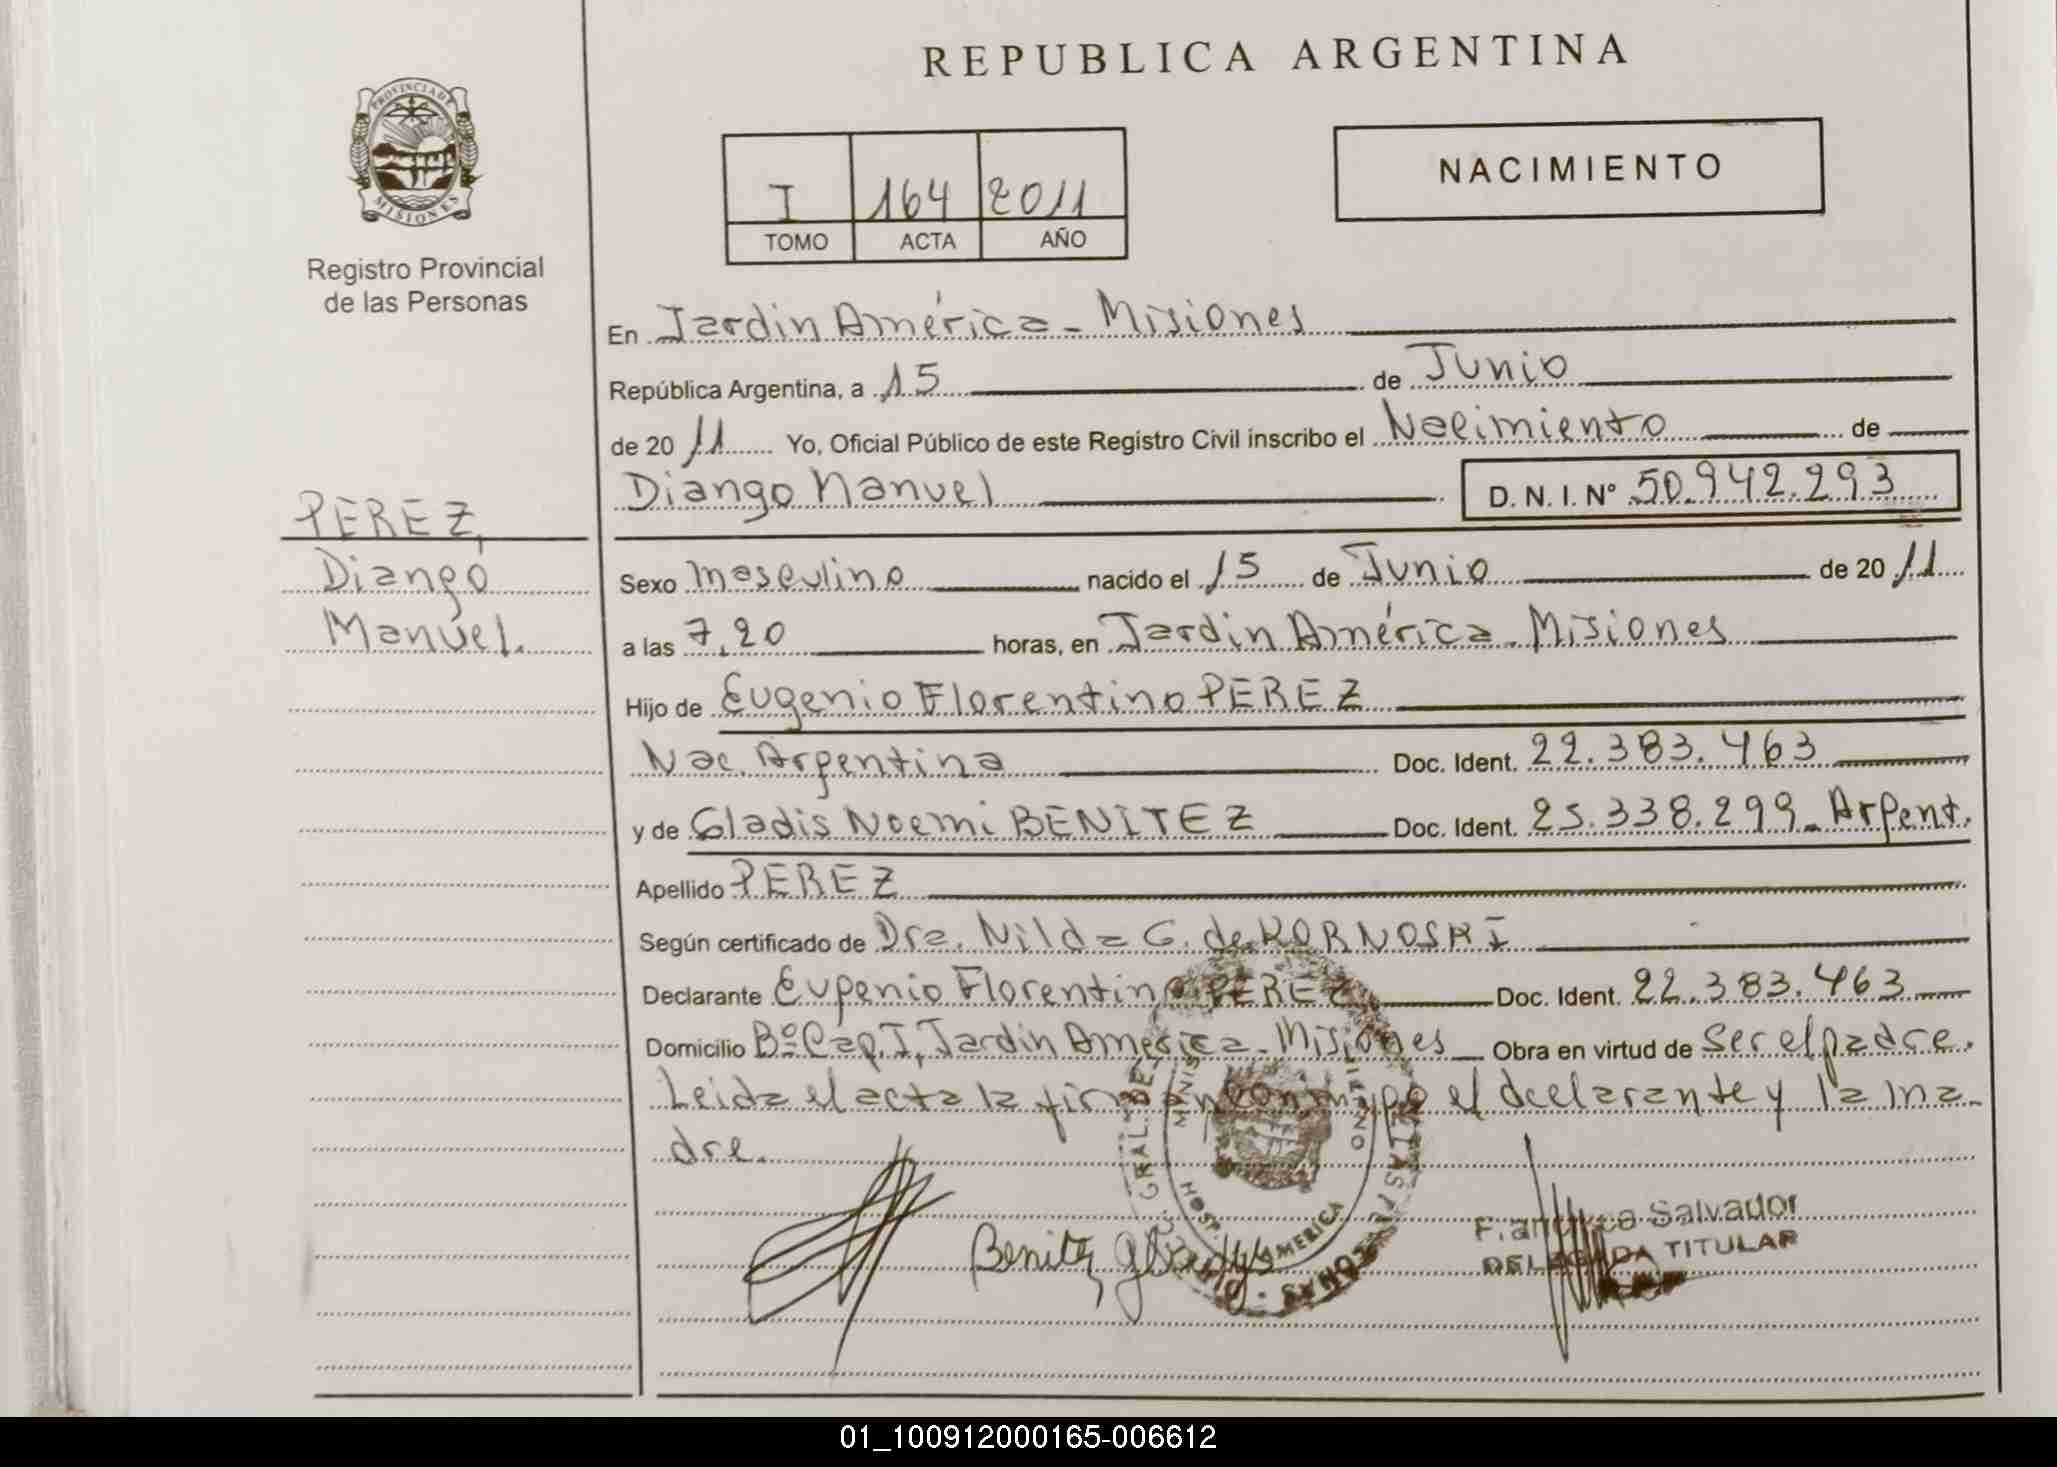 REPUBLICA ARGENTINA
PROVINCIA DE
MISIONES
Registro Provincial
de las Personas
I 164 2011
TOMO ACTA AÑO
NACIMIENTO
En Jardin América - Misiones
República Argentina, a 15 de Junio
de 20 11 Yo, Oficial Público de este Registro Civil inscribo el Nacimiento de
Diango Manuel D. N. I. Nº 50.942.293
PEREZ,
Diango
Manuel.
Sexo Masculino nacido el 15 de Junio de 20 11
a las 7,20 horas, en Jardin América - Misiones
Hijo de Eugenio Florentino PEREZ
Nac. Argentina Doc. Ident. 22.383.463
y de Gladis Noemi BENITEZ Doc. Ident. 25.338.299 - Argent.
Apellido PEREZ
Según certificado de Dra. Nilda G. de KORNOSKI
Declarante Eugenio Florentino PEREZ Doc. Ident. 22.383.463
Domicilio Bº Cap. I, Jardin América - Misiones Obra en virtud de Ser el padre.
Leida el acta la firman conmigo el declarante y la ma-
dre.
Benitz Gladys
HOSP. AMERICA
Francisca Salvador
DELEGADA TITULAR
01_100912000165-006612